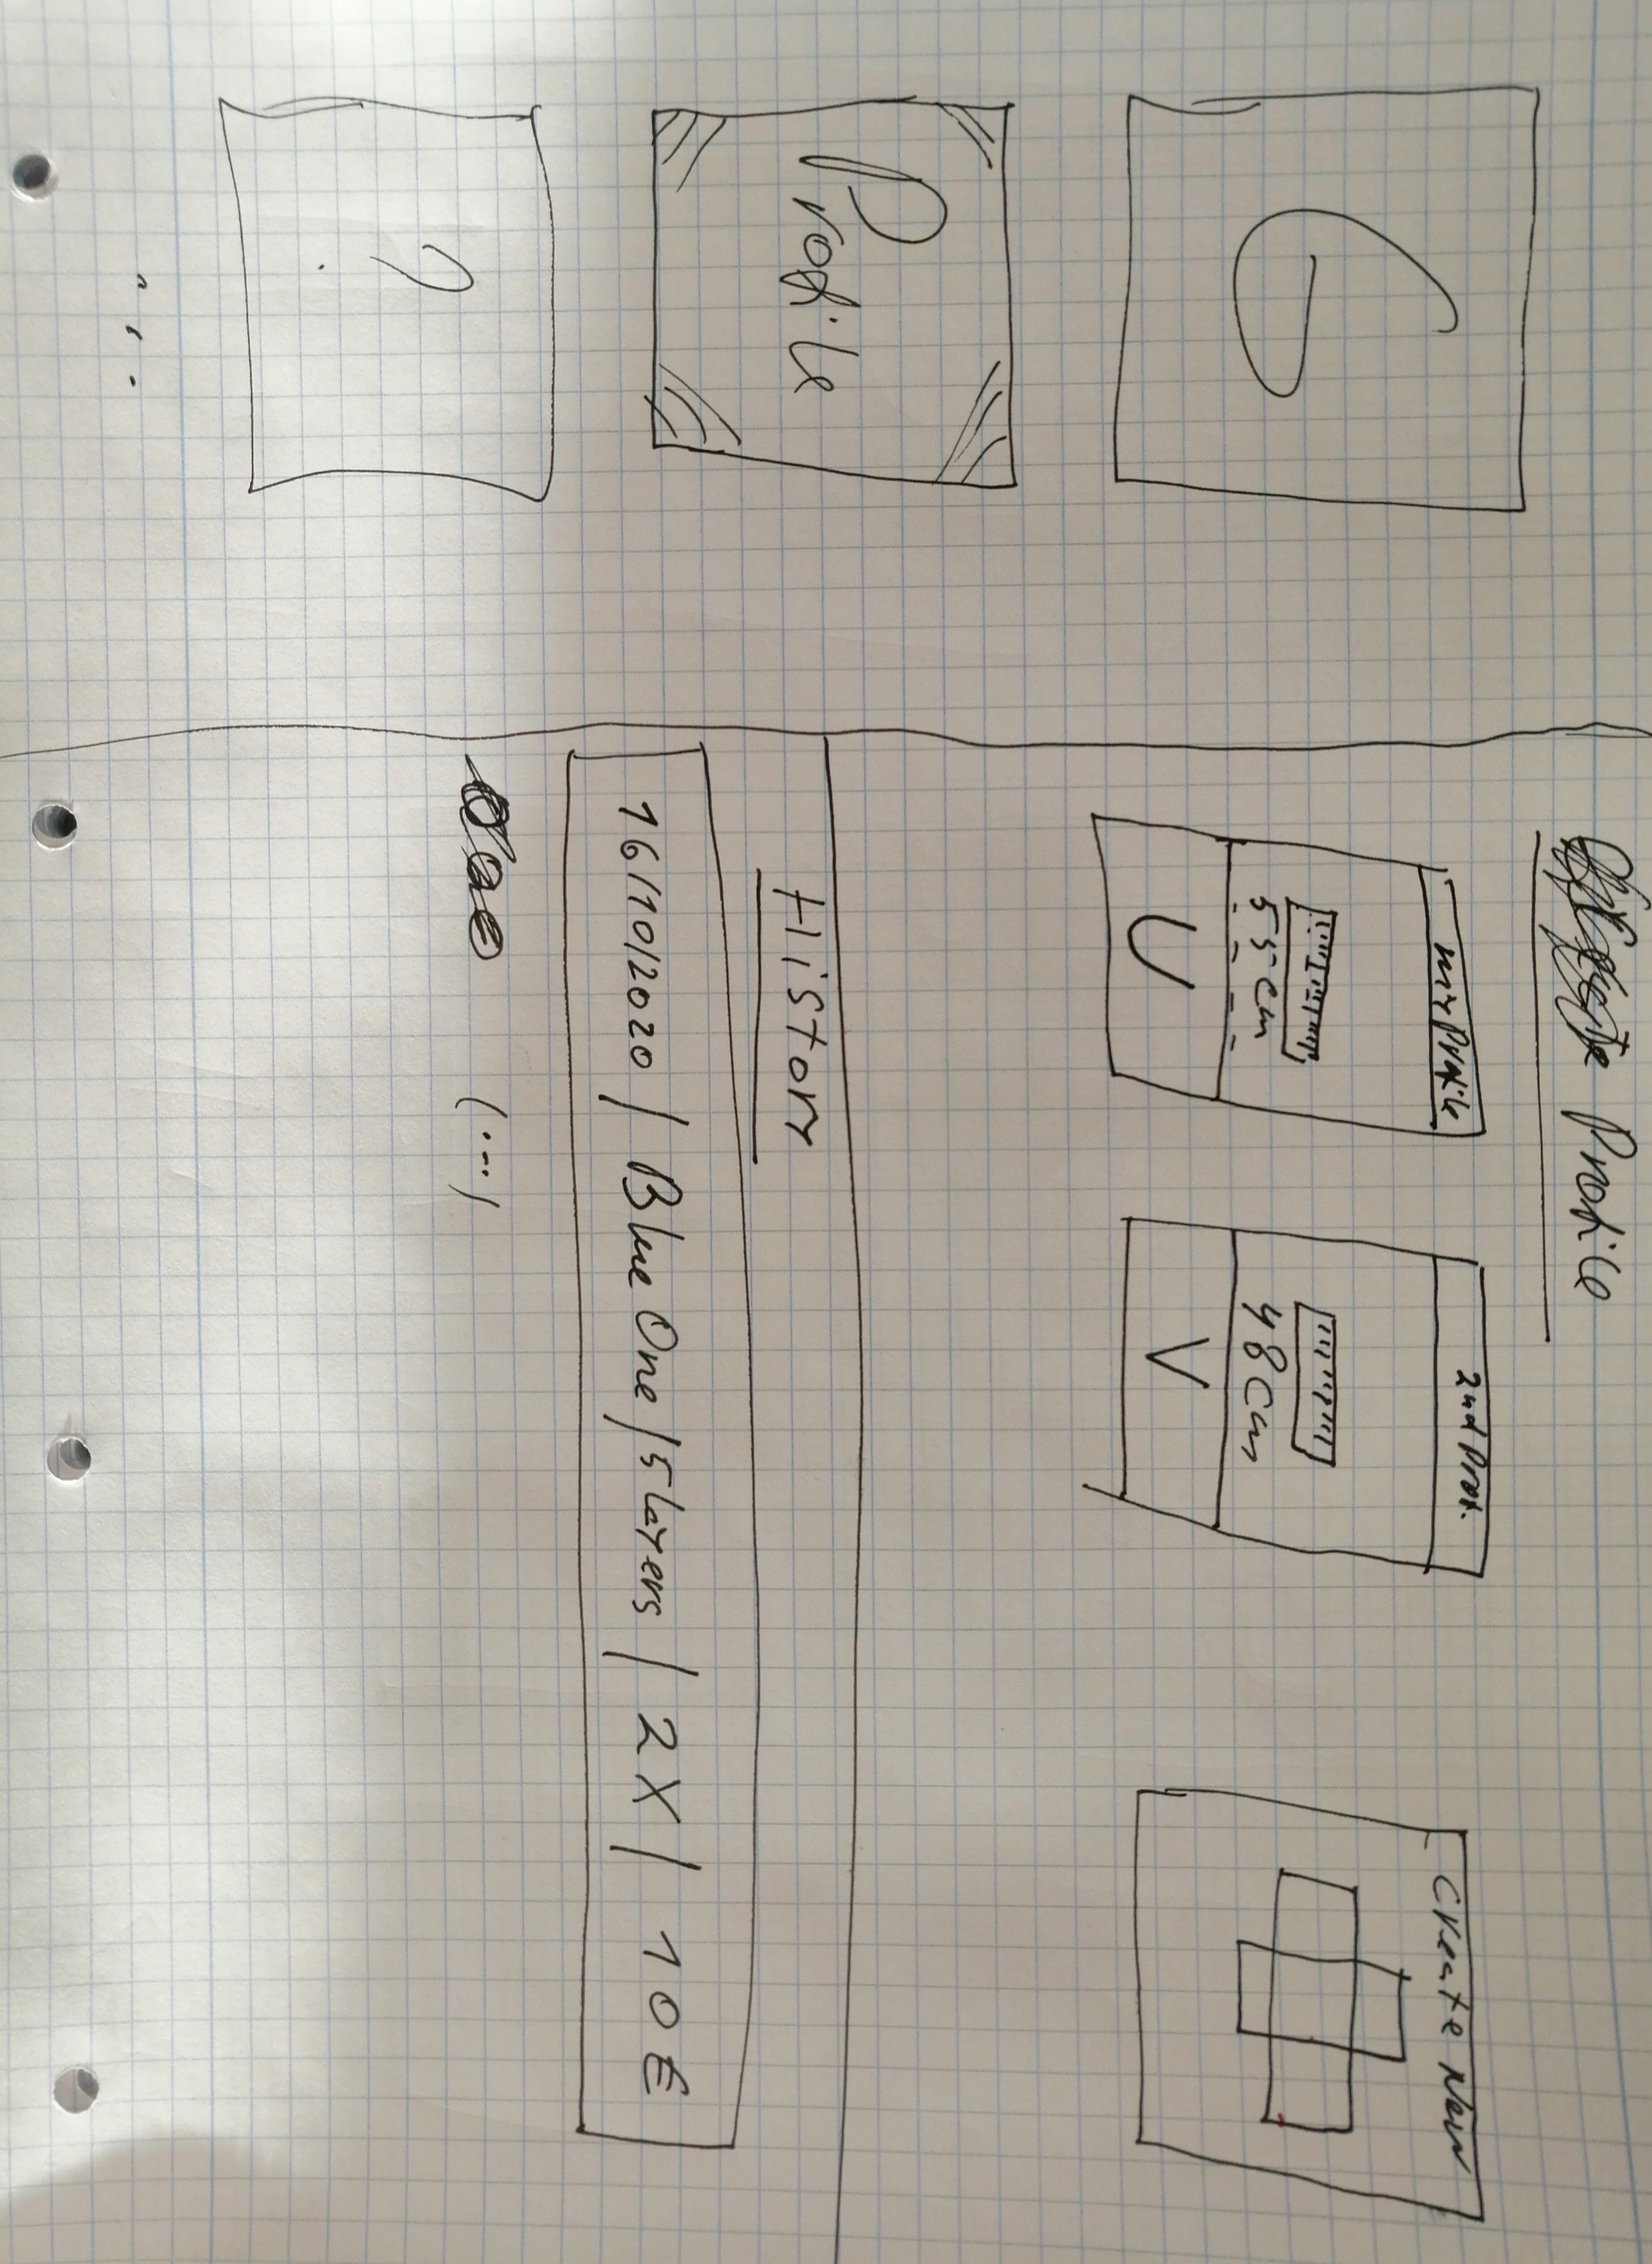 G
Profile
?
...
Profile
my Profile
55 cm
U
2nd Prof.
48 cm
V
Create New
History
16/10/2020 / Blue One / 5 layers / 2X / 10 €
(...)